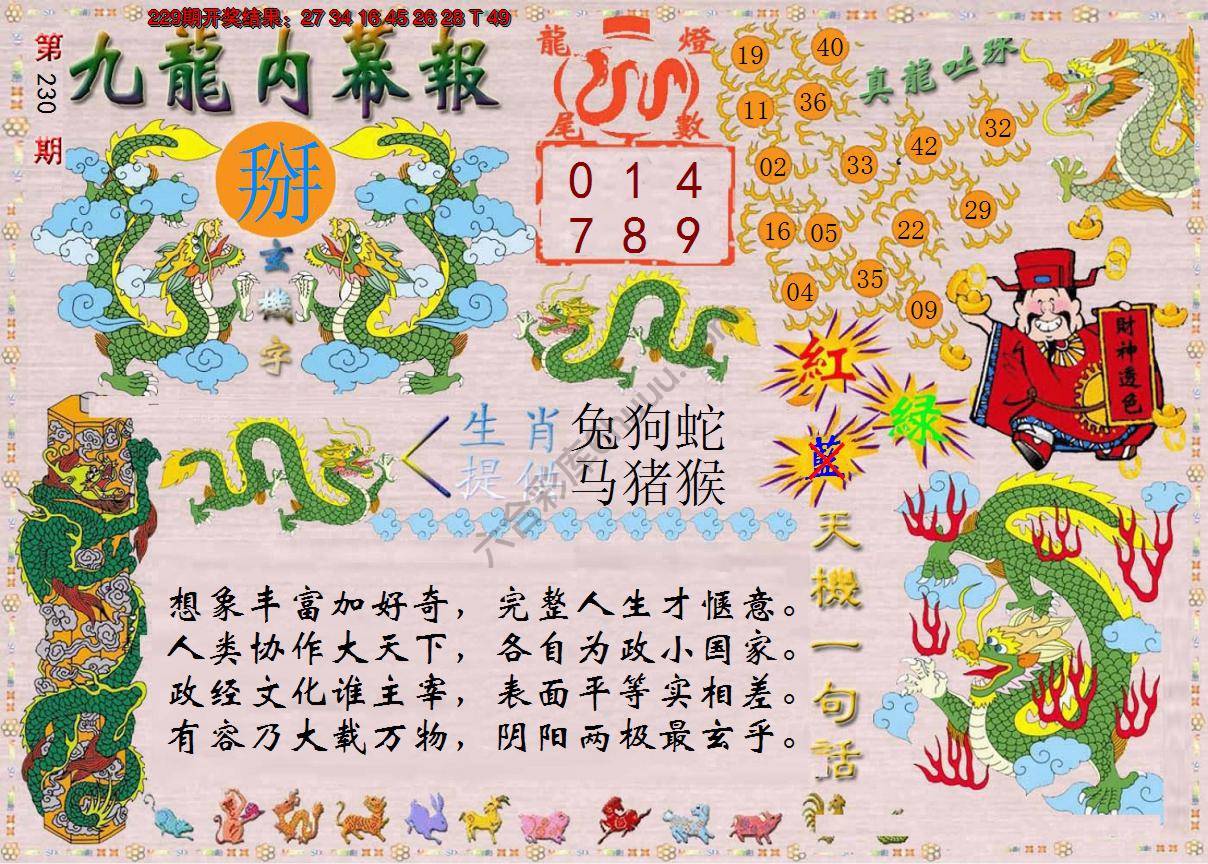 229期开奖结果：27 34 16 45 26 28 T 49
第230期
九龍内幕報
掰
玄機字
龍燈尾數
0 1 4
7 8 9
真龍吐珠
19 40
11 36
02 33 42 32
16 05 22 29
04 35 09
財神透色
紅
綠
藍
生肖 兔狗蛇
提供 马猪猴
天機一句話
想象丰富加好奇，完整人生才惬意。
人类协作大天下，各自为政小国家。
政经文化谁主宰，表面平等实相差。
有容乃大载万物，阴阳两极最玄乎。